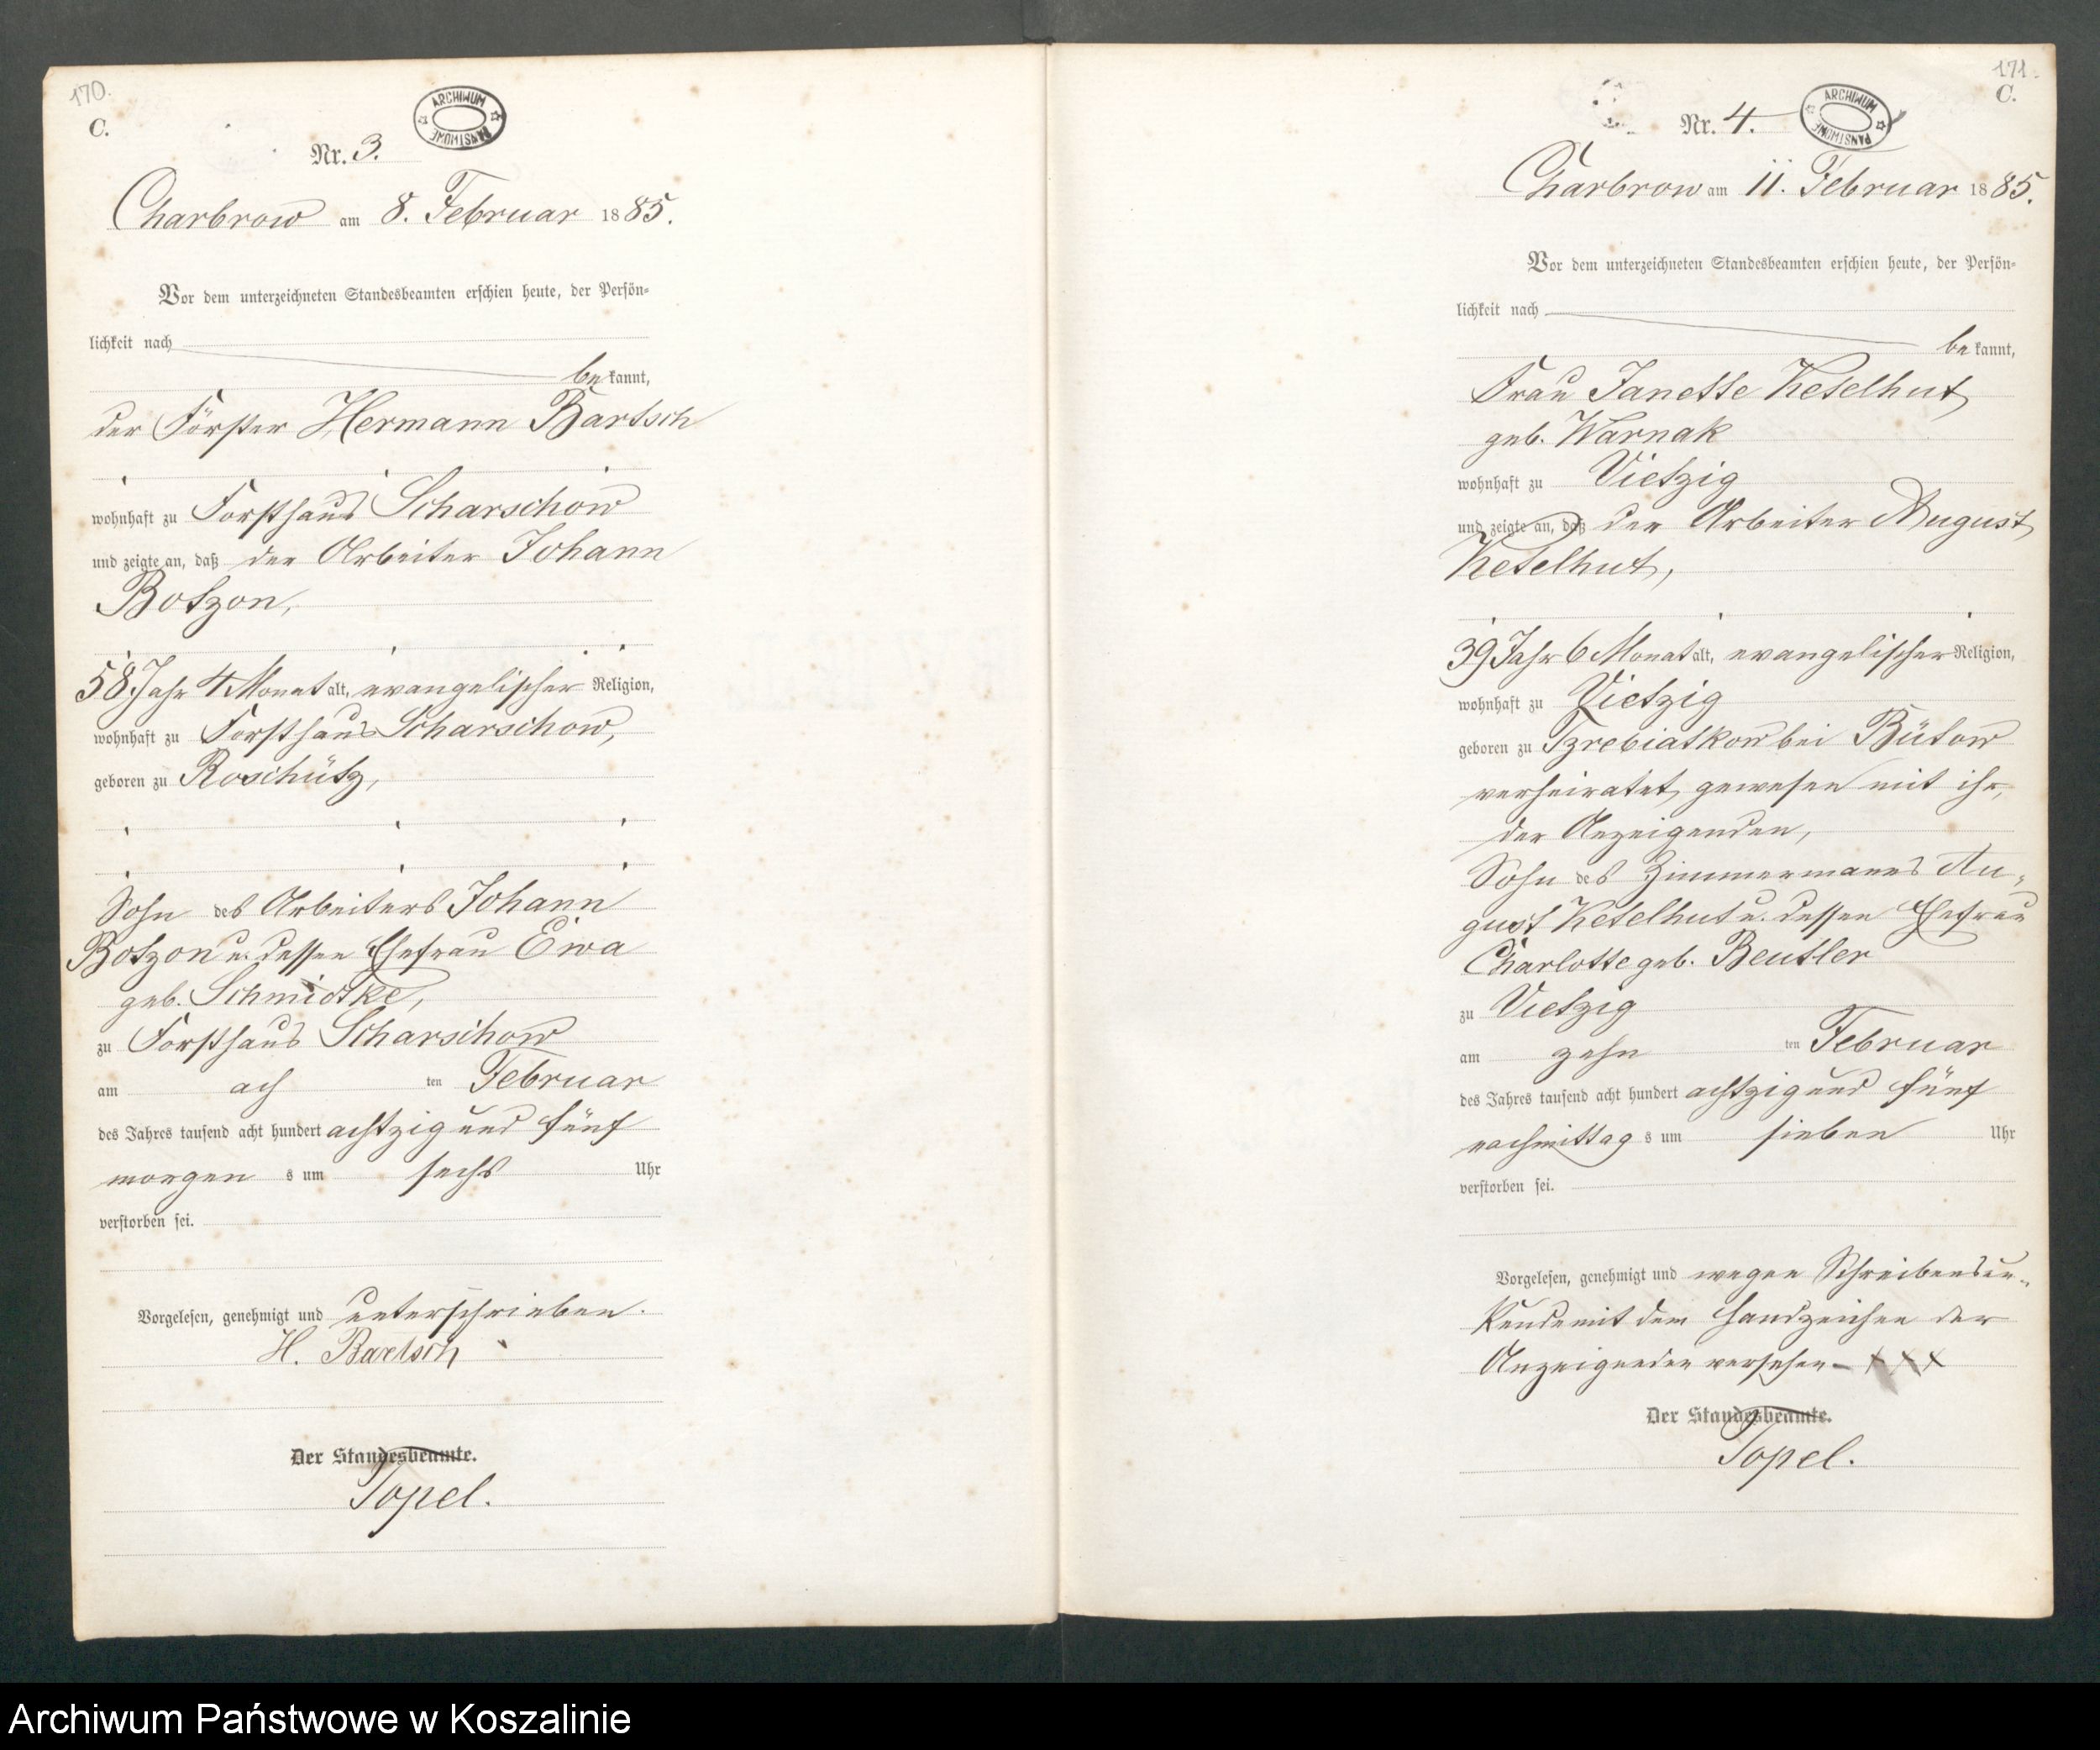 170.
C.
ARCHIWUM PAŃSTWOWE
Nr. 3.
Charbrow am 8. Februar 1885.
Vor dem unterzeichneten Standesbeamten erschien heute, der Persön-
lichkeit nach
bekannt,
der Förster Hermann Bartsch
wohnhaft zu Forsthaus Scharschow
und zeigte an, daß der Arbeiter Johann
Botzon,
58 Jahr 4 Monat alt, evangelischer Religion,
wohnhaft zu Forsthaus Scharschow,
geboren zu Roschütz,
Sohn des Arbeiters Johann
Botzon u. dessen Ehefrau Ewa
geb. Schmidtke,
zu Forsthaus Scharschow
am ach ten Februar
des Jahres tausend acht hundert achtzig und fünf
morgen s um sechs Uhr
verstorben sei.
Vorgelesen, genehmigt und unterschrieben.
H. Bartsch
Der Standesbeamte.
Topel.
171.
C.
ARCHIWUM PAŃSTWOWE
Nr. 4.
Charbrow am 11. Februar 1885.
Vor dem unterzeichneten Standesbeamten erschien heute, der Persön-
lichkeit nach
bekannt,
Frau Janette Ketelhut
geb. Warnak
wohnhaft zu Vietzig
und zeigte an, daß der Arbeiter August
Ketelhut,
39 Jahr 6 Monat alt, evangelischer Religion,
wohnhaft zu Vietzig
geboren zu Tzrebiatkow bei Bütow
verheiratet gewesen mit ihr,
der Anzeigenden,
Sohn des Zimmermanns Au-
gust Ketelhut u. dessen Ehefrau
Charlotte geb. Beutler
zu Vietzig
am zehn ten Februar
des Jahres tausend acht hundert achtzig und fünf
nachmittag s um sieben Uhr
verstorben sei.
Vorgelesen, genehmigt und wegen Schreibensun-
kunde mit dem Handzeichen der
Anzeigenden versehen - XXX
Der Standesbeamte.
Topel.
Archiwum Państwowe w Koszalinie